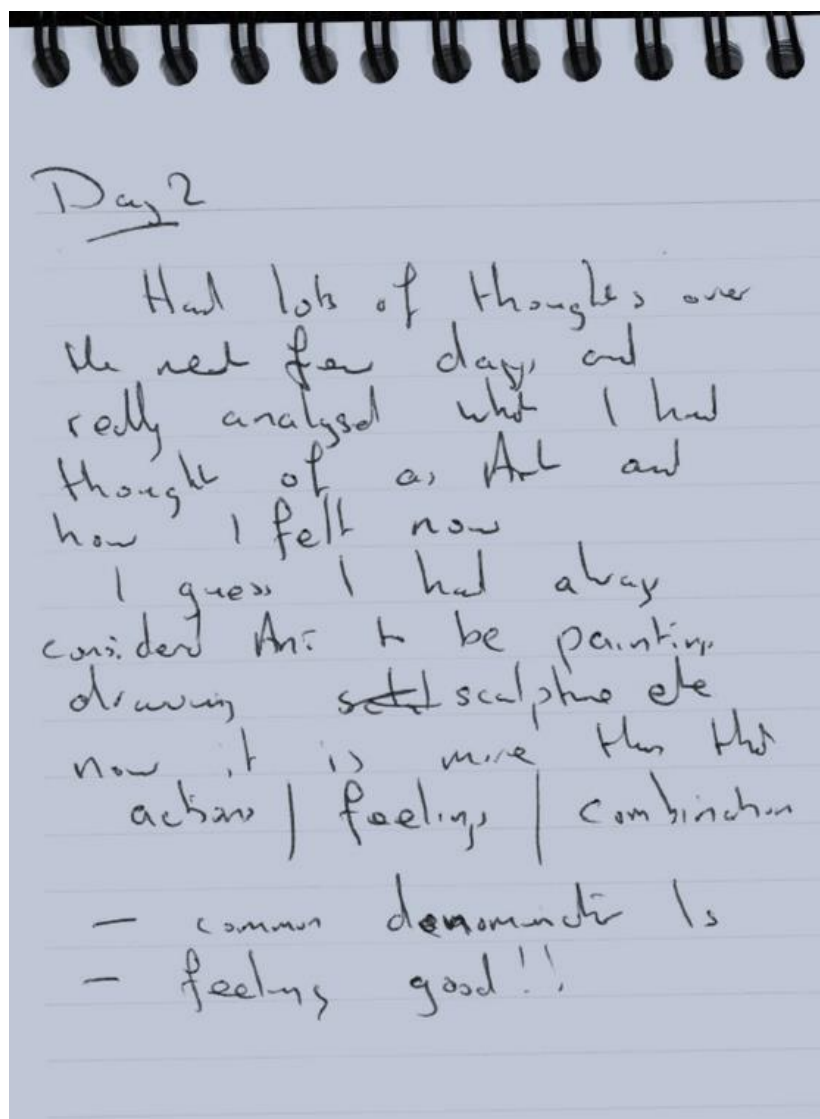 Day 2
Had lots of thoughts over
the next few days and
really analysed what I had
thought of as Art and
how I felt now
I guess I had always
considerd Art to be painting
drawing sculpture etc
now it is more than that
actions | feelings | combination
- common denominator Is
- feeling good!!